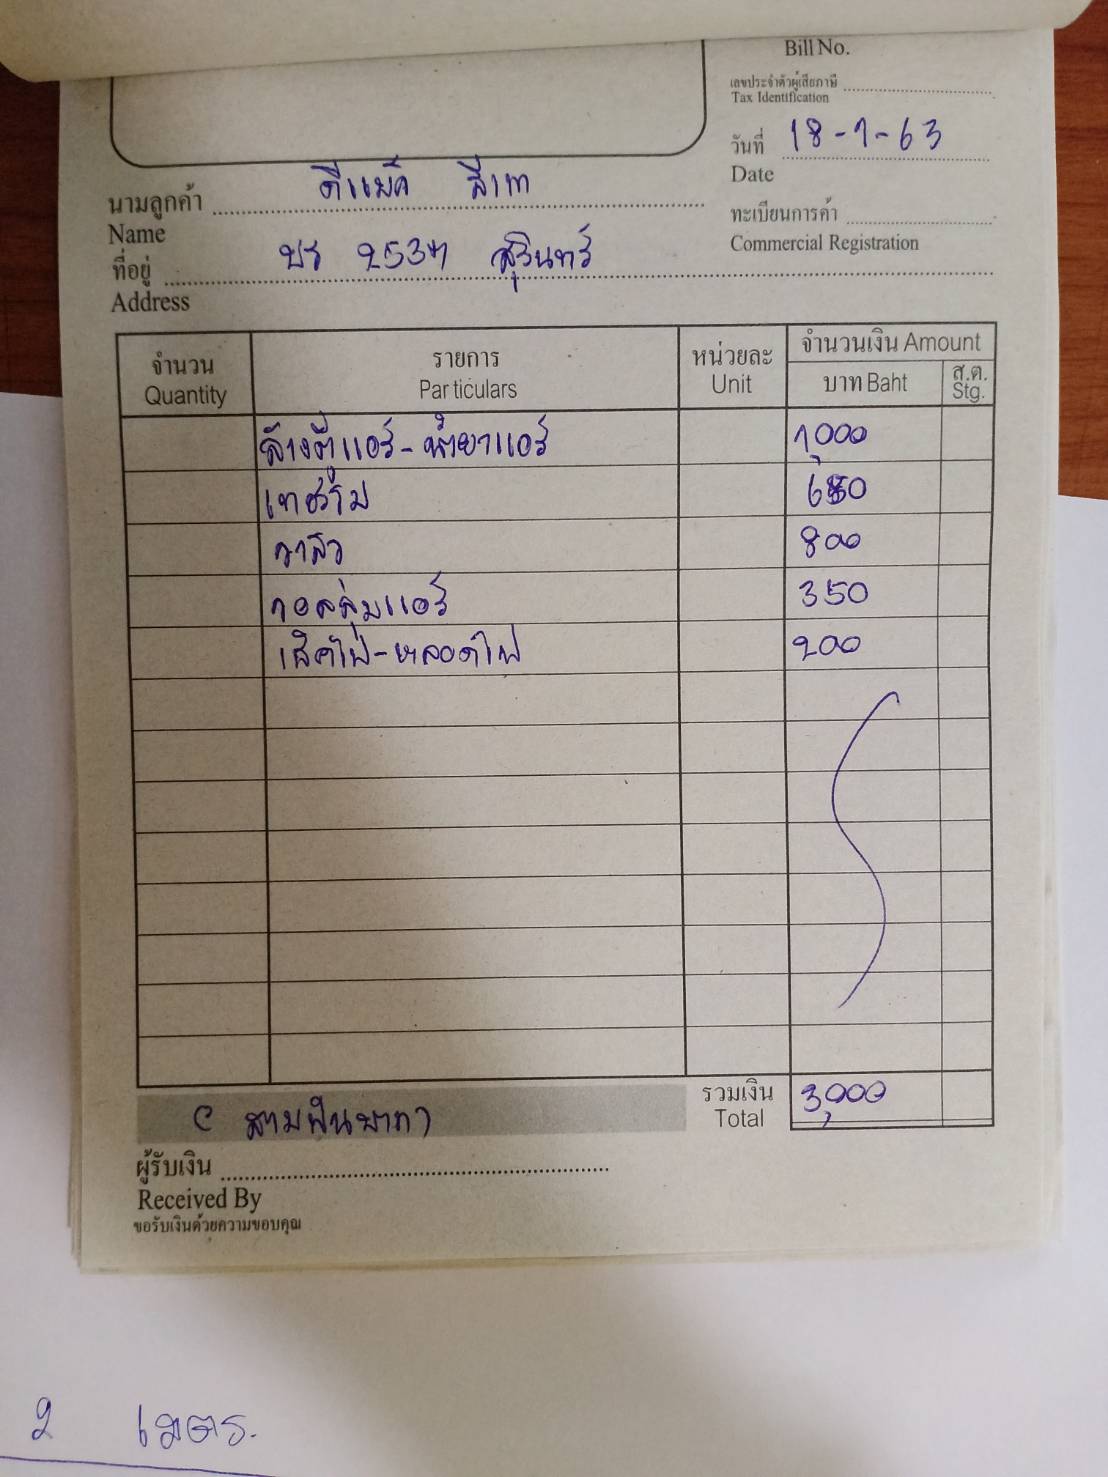 Bill No.
เลขประจำตัวผู้เสียภาษี
Tax Identification
วันที่ 18-1-63
Date
นามลูกค้า ดีแม็ค สีเทา
Name
ทะเบียนการค้า
Commercial Registration
ที่อยู่ บร 2537 สุรินทร์
Address
จำนวน รายการ หน่วยละ จำนวนเงิน Amount
Quantity Particulars Unit บาท Baht ส.ต. Stg.
ล้างตู้แอร์-น้ำยาแอร์ 1,000
เทอร์โม 650
วาล์ว 800
ถอดตู้มแอร์ 350
เช็คไฟ-หลอดไฟ 200
รวมเงิน 3,000
Total
( สามพันบาท )
ผู้รับเงิน
Received By
ขอรับเงินด้วยความขอบคุณ
2 เมตร.